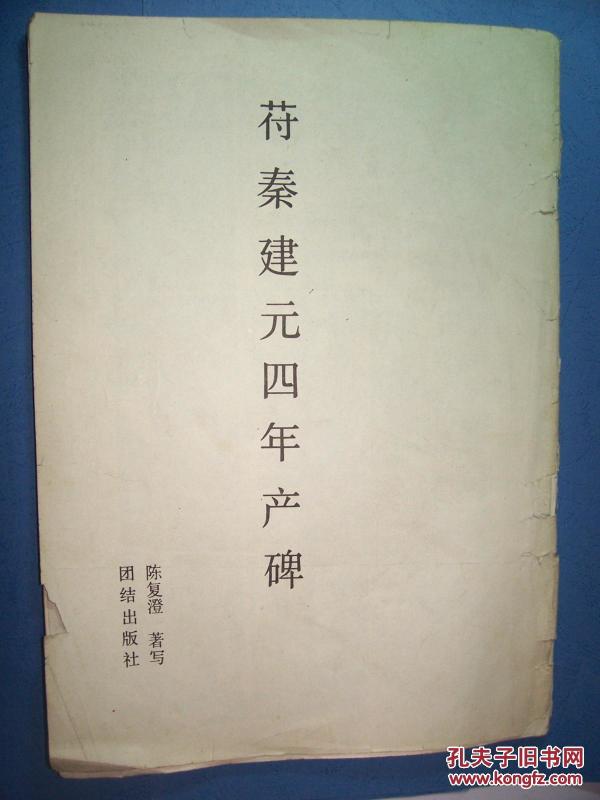 苻秦建元四年产碑
陈复澄 著写
团结出版社
孔夫子旧书网
www.kongfz.com